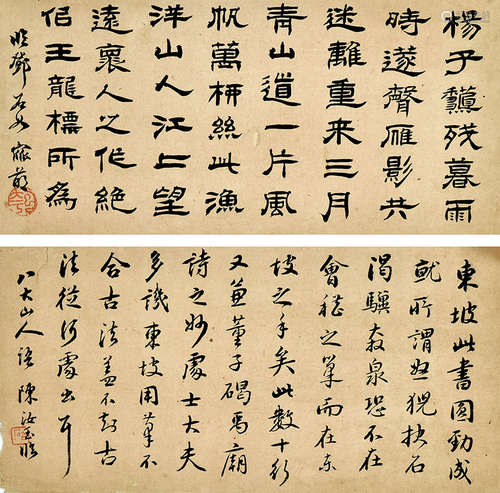 楊子龝殘暮雨
時篴聲雁影共
迷離重来三月
青山道一片風
帆萬柳絲此漁
洋山人江上望
遠褱人之作絕
佀王龍標所為
臨鄧石如
東坡此書圓勁成
就所謂怒猊抉石
渴驥奔泉恐不在
會稽之筆而在東
坡之手矣此數十行
又兼董子碣禹廟
詩之妙處士大夫
多譏東坡用筆不
合古法蓋不知古
法從何處出耳
八大山人語 陳汝玉臨